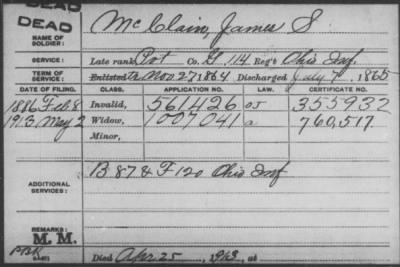 DEAD
DEAD
NAME OF SOLDIER: McClain, James S
SERVICE: Late rank Pvt Co. G, 114 Reg't Ohio Inf.
TERM OF SERVICE: Enlisted Nov. 27 1864 Discharged July 7, 1865
DATE OF FILING. CLASS. APPLICATION NO. LAW. CERTIFICATE NO.
1886 Feb 8 Invalid, 561426 355932
1913 May 2 Widow, 1007041 a 760,517
Minor,
ADDITIONAL SERVICES: B 87 & F 120 Ohio Inf
REMARKS:
M. M.
Died Apr. 25, 1913, at